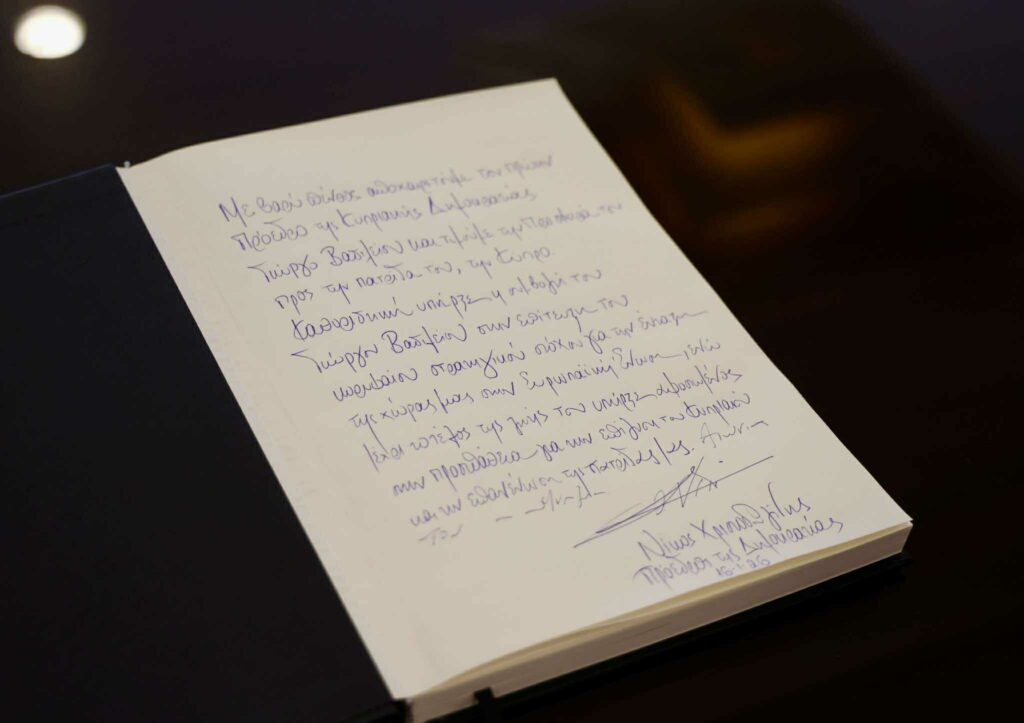 Με βαθύ πένθος αποχαιρετήσαμε τον πρώην
Πρόεδρο της Κυπριακής Δημοκρατίας
Γιώργο Βασιλείου και τιμούμε την προσφορά του
προς την πατρίδα του, την Κύπρο.
Καθοριστική υπήρξε η συμβολή του
Γιώργου Βασιλείου στην επίτευξη του
κορυφαίου στρατηγικού στόχου για την ένταξη
της χώρας μας στην Ευρωπαϊκή Ένωση, ενώ
μέχρι το τέλος της ζωής του υπήρξε αφοσιωμένος
στην προσπάθεια για την επίλυση του Κυπριακού
και την επανένωση της πατρίδας μας. Αιωνία
του η μνήμη
Νίκος Χριστοδουλίδης
Πρόεδρος της Δημοκρατίας